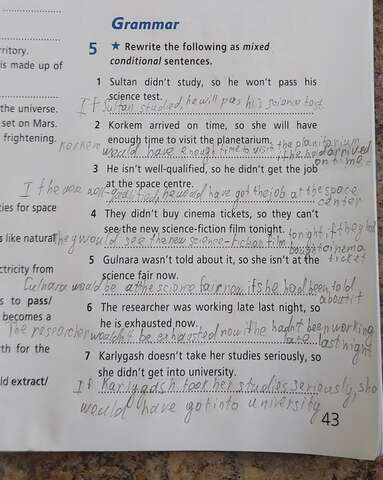 Grammar
rritory.
is made up of
5 ★ Rewrite the following as mixed
conditional sentences.
1 Sultan didn't study, so he won't pass his
science test.
If Sultan studied, he will pas his science test
the universe.
set on Mars.
frightening.
2 Korkem arrived on time, so she will have
enough time to visit the planetarium.
Korkem would have enough time to visit the planitarium
if she had arrived
on time
3 He isn't well-qualified, so he didn't get the job
at the space centre.
would have got the job at the space
center
ties for space
4 They didn't buy cinema tickets, so they can't
see the new science-fiction film tonight.
s like natural
They would see the new science-fiction film tonight, if they had
bought cinema
ticket
5 Gulnara wasn't told about it, so she isn't at the
science fair now.
ctricity from
Gulnara would be at the science fair now if she had been told
about it
s to pass/
becomes a
6 The researcher was working late last night, so
he is exhausted now.
The researcher wouldn't be exhausted now if he hadn't been working
late last night
rth for the
7 Karlygash doesn't take her studies seriously, so
she didn't get into university.
ld extract/
If Karlygash took her studies seriously, she
would have got into university
43